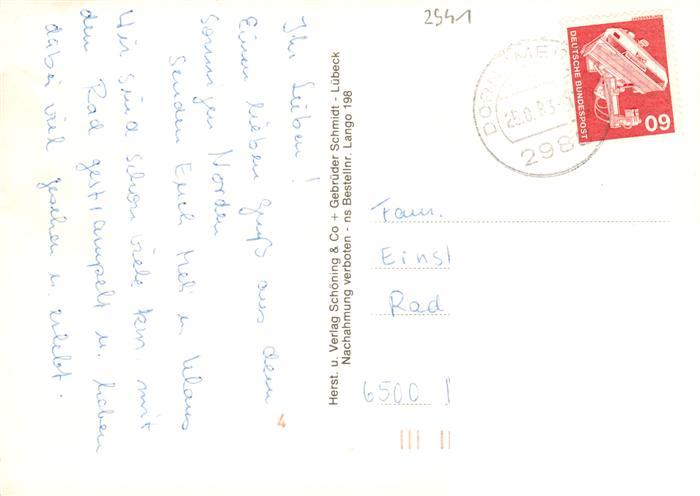 Ihr Lieben!
Einen lieben Gruß aus dem
sonnigen Norden
senden Euch Meli u. Klaus
Wir sind schon viele km. mit
dem Rad gestrampelt u. haben
dabei viel gesehen u. erlebt.
4
Herst. u. Verlag Schöning & Co + Gebrüder Schmidt - Lübeck
Nachahmung verboten - ns Bestellnr. Lango 198
2941
25.8.83
298
DEUTSCHE BUNDESPOST
60
Fam.
Einsl
Rad
6500